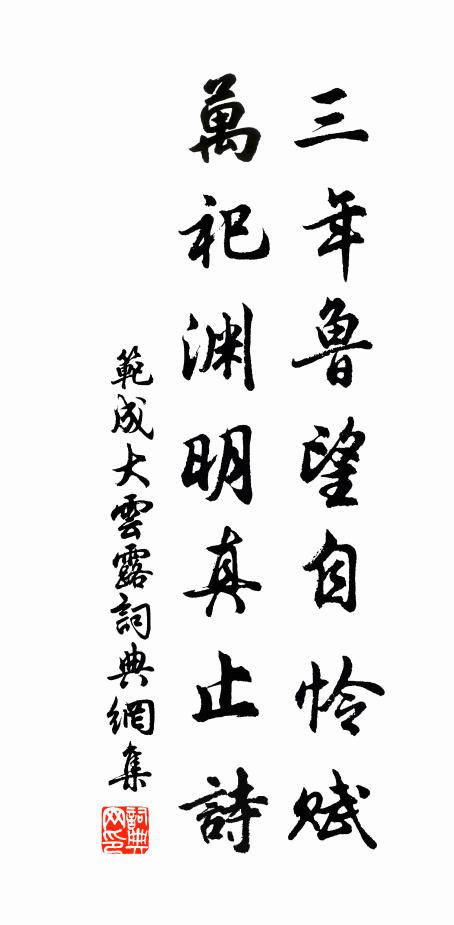 三年魯望自怜賦
萬祀渊明真止詩
範成大雲露詞典網集
詞典网印